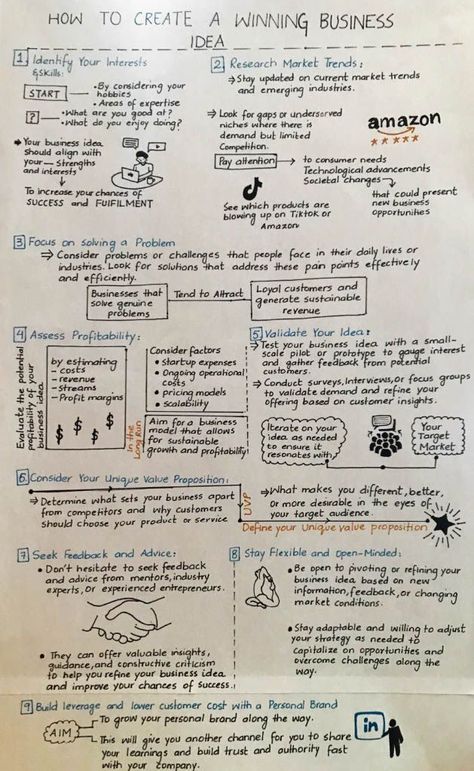 HOW TO CREATE A WINNING BUSINESS
IDEA
1 Identify Your Interests
& Skills:
START
• By considering your
hobbies
• Areas of expertise
?
• What are you good at?
• What do you enjoy doing?
Your business idea
Should align with
your — Strengths
and interests
To increase your chances of
SUCCESS and FULFILMENT
2 Research Market Trends:
Stay updated on current market trends
and emerging industries.
Look for gaps or underserved
niches where there is
demand but limited
Competition.
amazon
Pay attention
to consumer needs
Technological advancements
Societal changes
that could present
new business
opportunities
See which products are
blowing up on TikTok or
Amazon
3 Focus on solving a Problem
Consider problems or challenges that people face in their daily lives or
industries. Look for solutions that address these pain points effectively
and efficiently.
Businesses that
solve genuine
problems
Tend to Attract
Loyal customers and
generate sustainable
revenue
4 Assess Profitability:
Evaluate the potential
profitability of your
business idea
by estimating
- costs
- revenue
- streams
- Profit margins
$ $ $ $
Consider factors
• Startup expenses
• Ongoing operational
costs
• pricing models
• scalability
In the
Long Run
Aim for a business
model that allows
for sustainable
growth and profitability
5 Validate Your Idea:
Test your business idea with a small-
scale pilot or prototype to gauge interest
and gather feedback from potential
customers.
Conduct surveys, Interviews, or focus groups
to validate demand and refine your
offering based on customer insights.
Iterate on your
idea as needed
to ensure it
resonates with
Your
Target
Market
6 Consider Your Unique Value Proposition:
Determine what sets your business apart
from competitors and why customers
should choose your product or service
UVP
What makes you different, better,
or more desirable in the eyes of
your target audience.
Define your Unique value proposition
7 Seek Feedback and Advice:
• Don't hesitate to seek feedback
and advice from mentors, industry
experts, or experienced entrepreneurs.
• They can offer valuable insights,
guidance, and constructive criticism
to help you refine your business idea
and improve your chances of success.
8 Stay Flexible and Open-Minded:
• Be open to pivoting or refining your
business idea based on new
information, feedback, or changing
market conditions.
• Stay adaptable and willing to adjust
your strategy as needed to
capitalize on opportunities and
overcome challenges along the
way.
9 Build leverage and lower customer cost with a Personal Brand
AIM
To grow your personal brand along the way.
This will give you another channel for you to share
your learnings and build trust and authority fast
with your company.
in